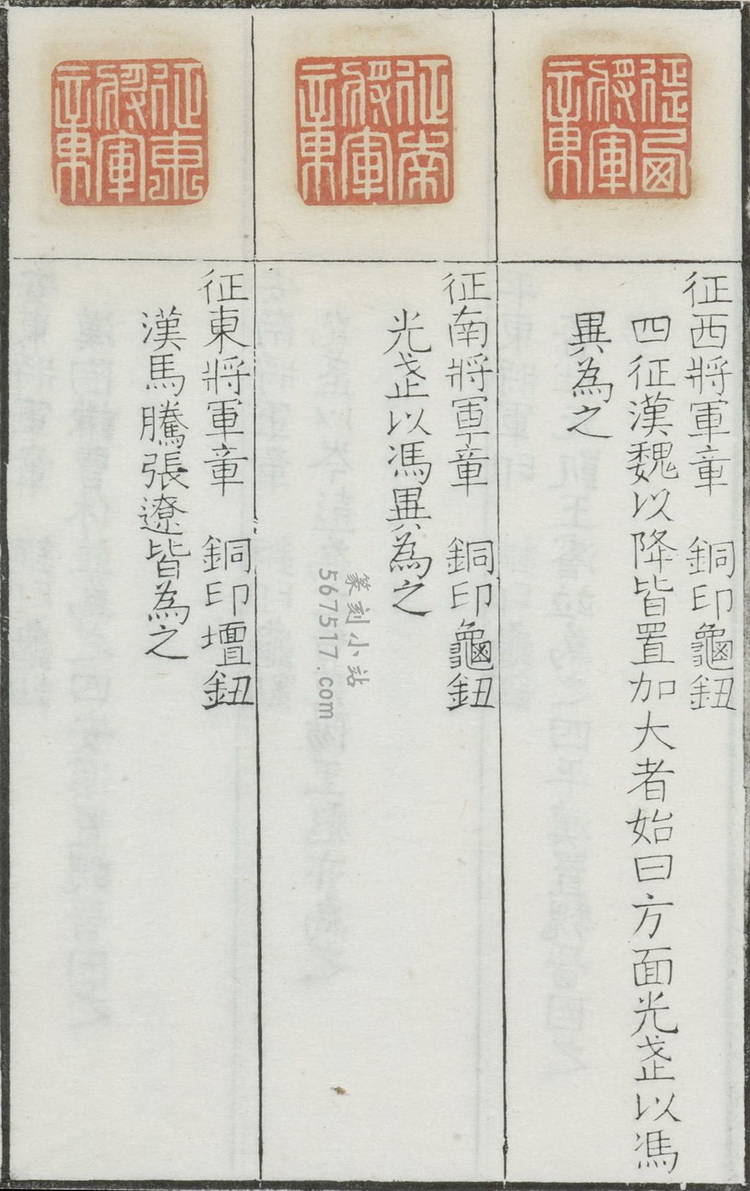 征西將軍章
征西將軍章 銅印龜鈕
四征漢魏以降皆置加大者始曰方面光武以馮
異為之
征南將軍章
征南將軍章 銅印龜鈕
光武以馮異為之
征東將軍章
征東將軍章 銅印壇鈕
漢馬騰張遼皆為之
篆刻小站
567517.com